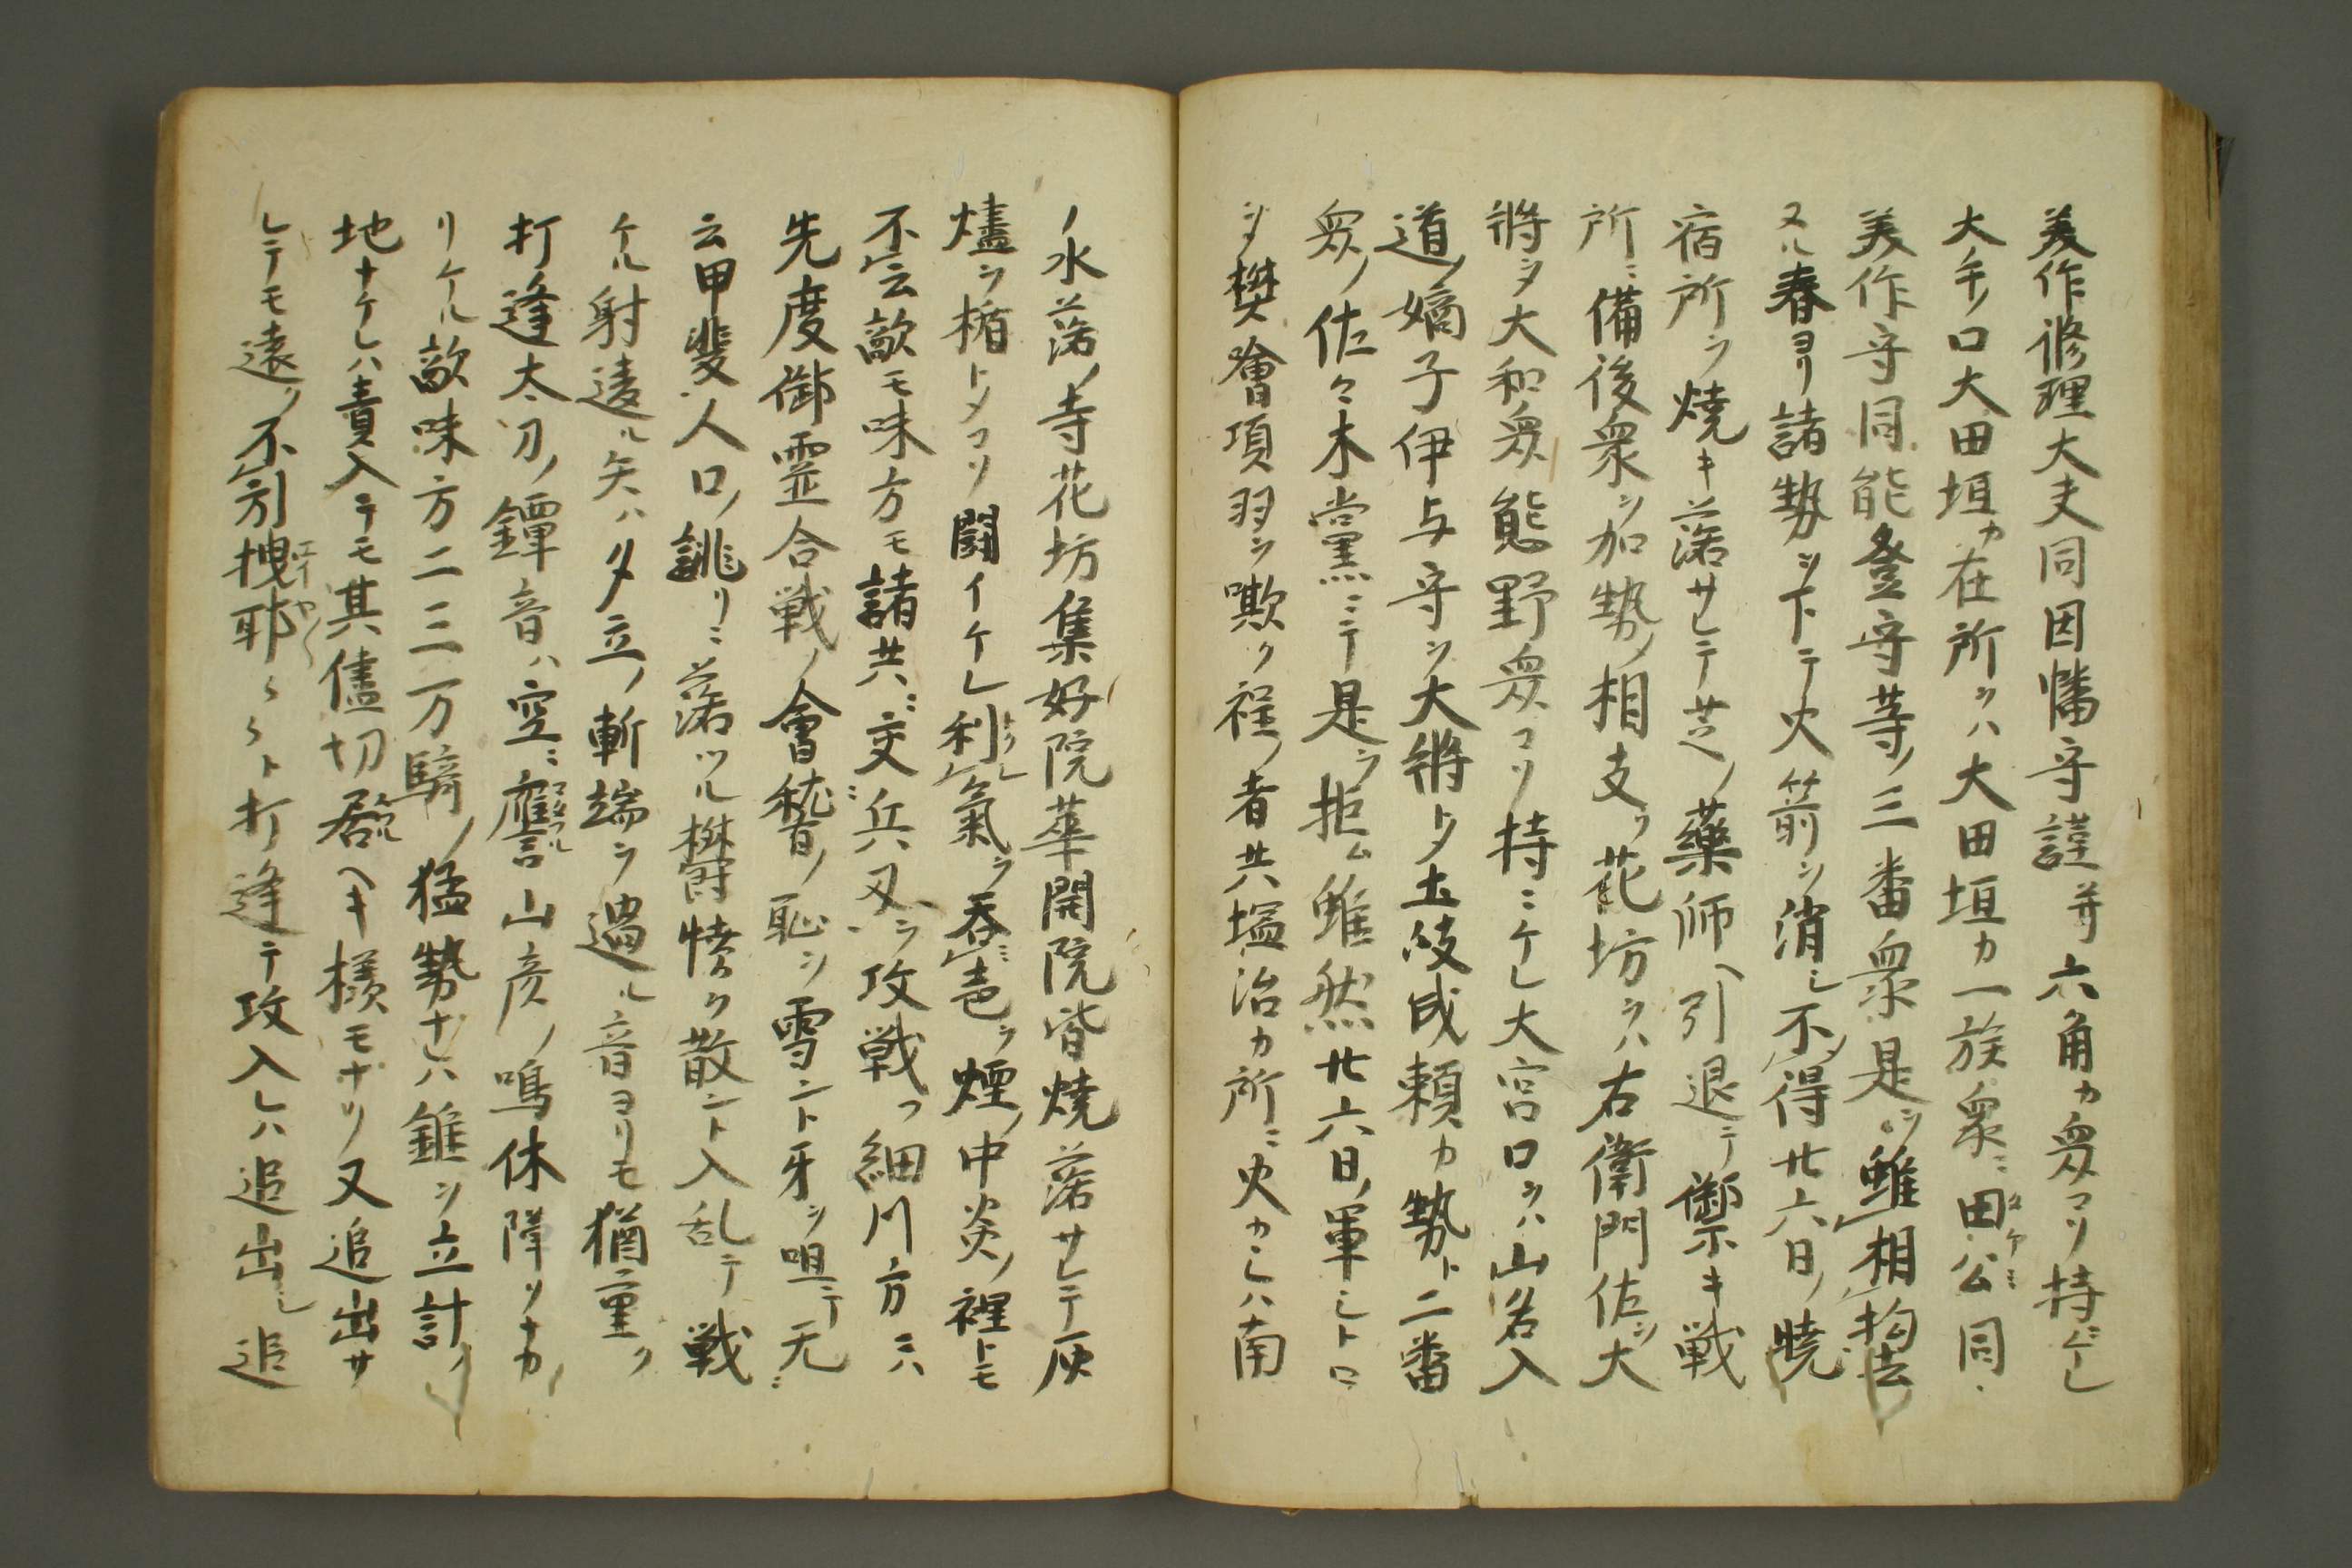 美作修理大夫同因幡守謹并六角カ衆コソ持ケレ
大手ノ口大田垣カ在所ヲハ大田垣カ一族衆ニ田公同
美作守同能登守等ノ三番衆是ヲ雖相拘去
ヌル春ヨリ諸勢ツ下テ火箭ヲ消シ不得廿六日ノ暁
宿所ヲ焼キ落サレテ芝ノ薬師ヘ引退テ禦キ戦
所ニ備後衆ヲ加勢ノ相支フ花坊ヲハ右衛門佐ヲ大
将シタ大和衆熊野衆コソ持ニケレ大宮口ヲハ山名入
道ノ嫡子伊与守ヲ大将トタ土岐成頼カ勢ト二番
衆ノ佐々木党ニテ是ヲ拒ム雖然廿六日ノ軍シトロ
ニタ樊噲項羽ヲ欺ク程ノ者共塩治カ所ニ火カレハ南
ノ水落ノ寺花坊集好院華開院皆焼落サレテ灰
燼ヲ楯トタコソ闘イケレ利氣ヲ呑ニ壱ヲ煙ノ中炎ノ裡トモ
不云敵モ味方モ諸共ニ交兵刃ヲ攻戦フ細川方ニハ
先度御霊合戦ノ會稽ノ恥ヲ雪ント牙ヲ咀テ无
云甲斐人口ノ誂リニ落ツル欝憤ク散ント入乱テ戦
ケル射違ル矢ハタ立ノ斬端ヲ過ル音ヨリモ猶重ク
打逢太刀ノ鐔音ハ空ニ譍山彦ノ鳴休障リナカ
リケル敵味方二三万騎ノ猛勢ナレハ錐ヲ立計ノ
地ナケレハ責入テモ其儘切居ヘキ様モナリ又追出サ
レテモ遠ク不引拽耶〱〱ト打逢テ攻入レハ追出シ追